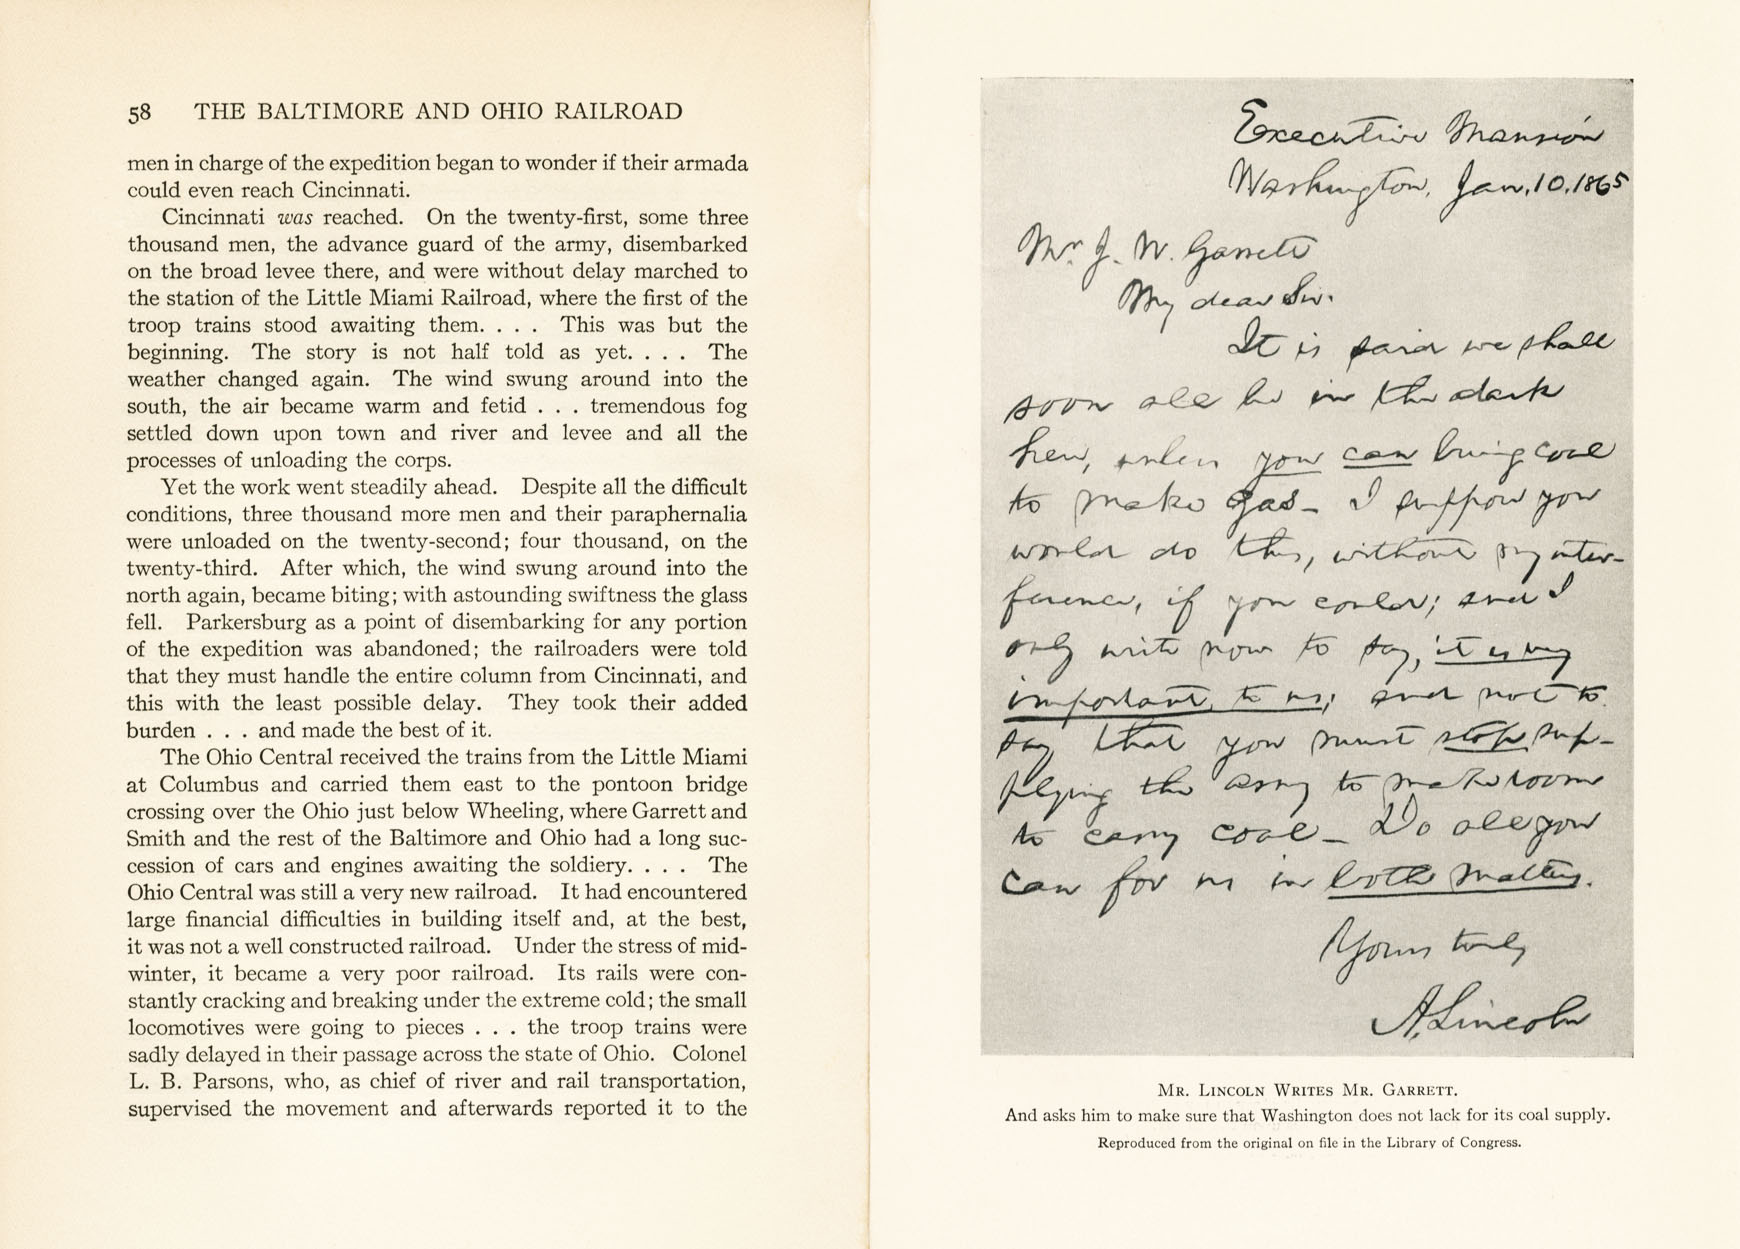 58 THE BALTIMORE AND OHIO RAILROAD
men in charge of the expedition began to wonder if their armada
could even reach Cincinnati.
Cincinnati was reached. On the twenty-first, some three
thousand men, the advance guard of the army, disembarked
on the broad levee there, and were without delay marched to
the station of the Little Miami Railroad, where the first of the
troop trains stood awaiting them. . . . This was but the
beginning. The story is not half told as yet. . . . The
weather changed again. The wind swung around into the
south, the air became warm and fetid . . . tremendous fog
settled down upon town and river and levee and all the
processes of unloading the corps.
Yet the work went steadily ahead. Despite all the difficult
conditions, three thousand more men and their paraphernalia
were unloaded on the twenty-second; four thousand, on the
twenty-third. After which, the wind swung around into the
north again, became biting; with astounding swiftness the glass
fell. Parkersburg as a point of disembarking for any portion
of the expedition was abandoned; the railroaders were told
that they must handle the entire column from Cincinnati, and
this with the least possible delay. They took their added
burden . . . and made the best of it.
The Ohio Central received the trains from the Little Miami
at Columbus and carried them east to the pontoon bridge
crossing over the Ohio just below Wheeling, where Garrett and
Smith and the rest of the Baltimore and Ohio had a long suc-
cession of cars and engines awaiting the soldiery. . . . The
Ohio Central was still a very new railroad. It had encountered
large financial difficulties in building itself and, at the best,
it was not a well constructed railroad. Under the stress of mid-
winter, it became a very poor railroad. Its rails were con-
stantly cracking and breaking under the extreme cold; the small
locomotives were going to pieces . . . the troop trains were
sadly delayed in their passage across the state of Ohio. Colonel
L. B. Parsons, who, as chief of river and rail transportation,
supervised the movement and afterwards reported it to the
Executive Mansion
Washington, Jan. 10, 1865
Mr. J. W. Garrett
My dear Sir.
It is said we shall
soon all be in the dark
here, unless you can bring coal
to make gas— I suppose you
would do this, without my inter-
ference, if you could; and I
only write now to say, it is very
important to us; and not to
say that you must stop sup-
plying the army to make room
to carry coal— Do all you
can for us in both matters.
Yours truly
A. Lincoln
MR. LINCOLN WRITES MR. GARRETT.
And asks him to make sure that Washington does not lack for its coal supply.
Reproduced from the original on file in the Library of Congress.